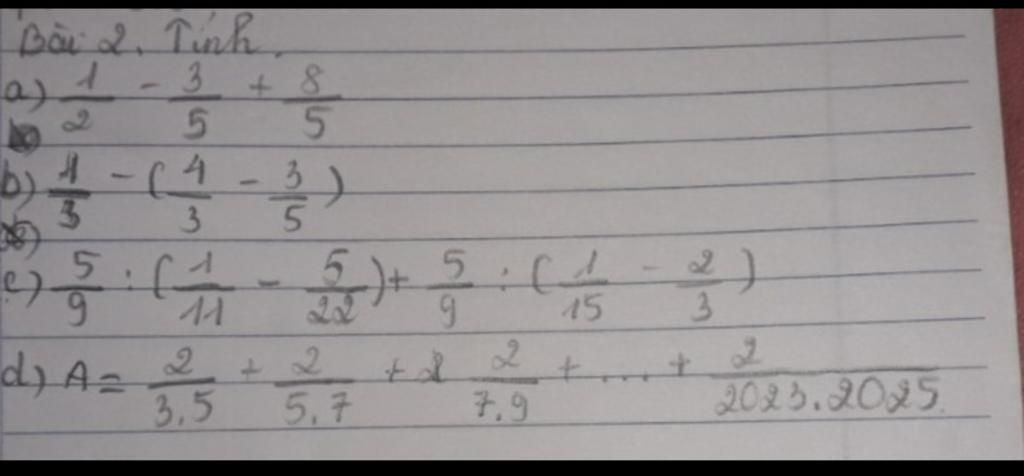 Bài 2. Tính.
a) 1/2 - 3/5 + 8/5
b) 1/3 - (4/3 - 3/5)
c) 5/9 : (1/11 - 5/22) + 5/9 : (1/15 - 2/3)
d) A = 2/3.5 + 2/5.7 + 2/7.9 + ... + 2/2023.2025